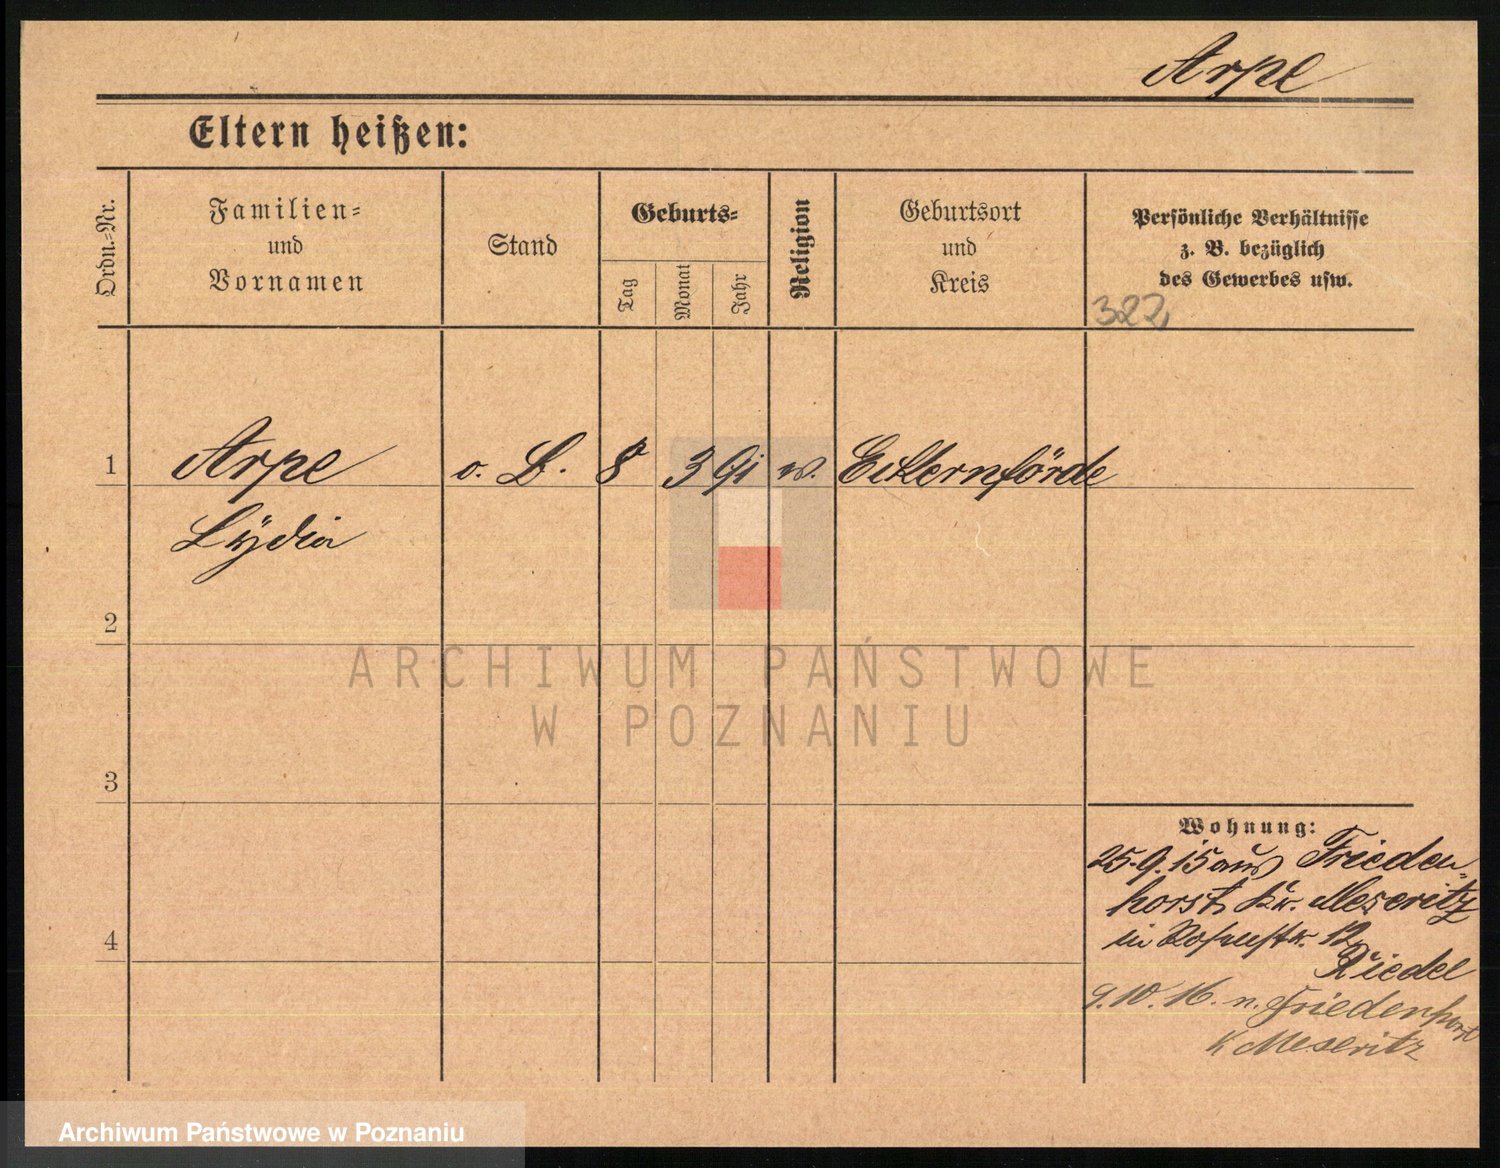 Arpe
Eltern heißen:
Ordn.-Nr.
Familien-
und
Vornamen
Stand
Geburts-
Tag
Monat
Jahr
Religion
Geburtsort
und
Kreis
Persönliche Verhältnisse
z. B. bezüglich
des Gewerbes usw.
322
1
Arpe
o. B.
8
3
91
w.
Eckernförde
Lydia
2
ARCHIWUM PAŃSTWOWE
W POZNANIU
3
Wohnung:
25.9.15 aus Frieden-
horst, Kr. Meseritz
in 12
4
Riedel
9.10.16. n. Friedenhorst
K Meseritz
Archiwum Państwowe w Poznaniu